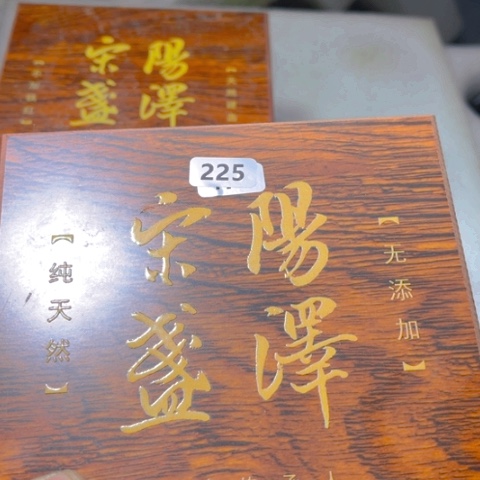 陽澤
宋盞
225
陽澤
宋盞
【无添加】
【纯天然】